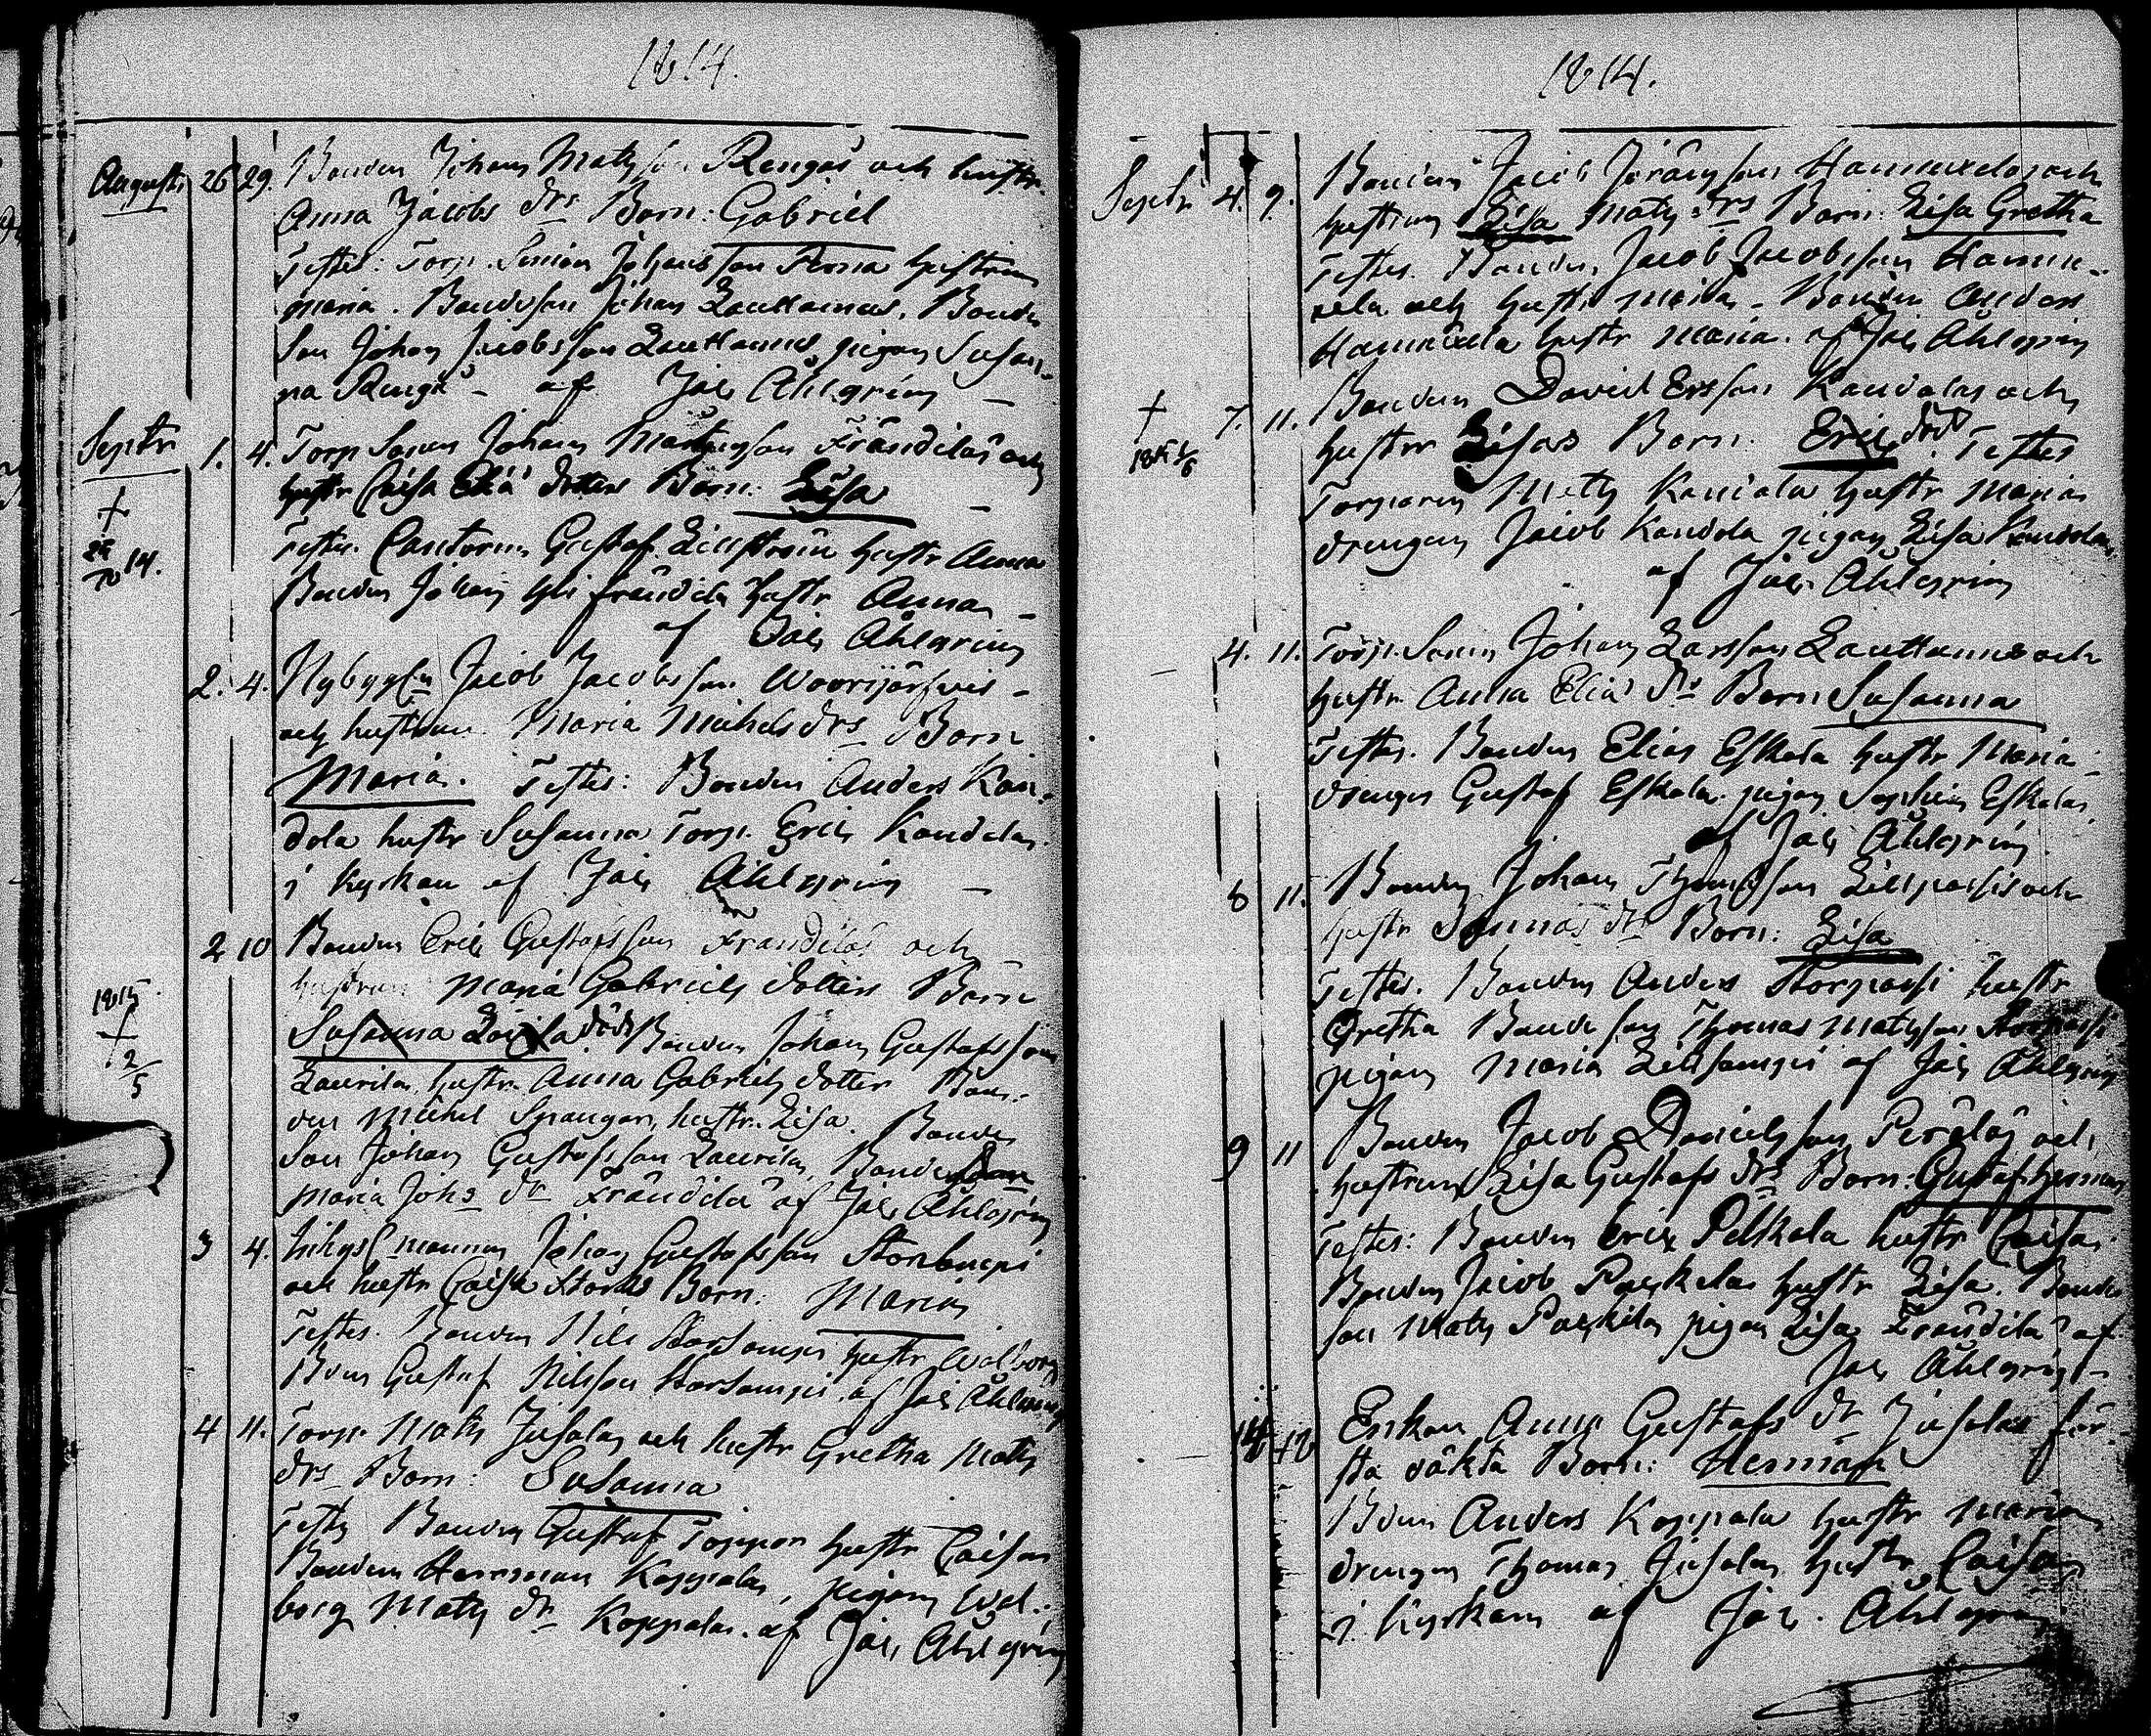 1814.
Augusti 26 29. Bonden Johan Matsson Rengas och hustr.
Anna Jacobs drs Barn: Gabriel
Testes: Torp. Simon Johansson Perna hustrun
Maria. Bondeson Johan Lauttamus. Bonde
son Johan Jacobsson Lauttamus, pigan Susan-
na Rengo - af Jac Ahlgrén
Septr 1. 4. Torp Sonen Johan Matsson Frändilä och
hustr Caisa Eliä dotters Barn: Lisa
Testes. Cantorn Gustaf hustr Anna
Bonden Johan Yli Frändilä hustr Anna
af Jac Ahlgrén
14.
2. 4. Nybygg Jacob Jacobsson Woorijärfvis
och hustrun Maria Michels drs Barn
Maria. Testes: Bonden Anders Kan-
dola hustr Susanna Torp. Eric Kandola
i Kyrkan af Jac Ahlgrén
2 10 Bonden Eric Gustafsson Frändiläs och
hustrun Maria Gabriels dotters Barn
1815 2/5 Susanna Lovisa död Bonden Johan Gustafsson
Laurila, hustr. Anna Gabriels dotter Bon-
den Michel Spangar, hustr. Lisa. Bonde
Son Johan Gustafsson Laurila, Bonde
Maria Johs dr Frändilä af Jac Ahlgrén
3 4. mannen Johan Gustafsson
och hustr Caisa Barn: Maria
Testes. Bonden Nils Storkampi hustr Walborg
Bdens Gustaf Nilsson Storkampi af Jac Ahlgrén
4 11. Torp. Mats Jusola och hustr Gretha Mats
drs Barn: Susanna
Testes Bonden Gustaf Toppor hustr Caisa
Bonden Herrman Koppala, pigan Wal-
borg Mats dr Koppala. af Jac Ahlgrén
1814.
Septr 4. 9. Bonden Jacob Jöransson Hannuxela och
hustrun Lisa Mats drs Barn: Lisa Gretha
Testes. Bonden Jacob Jacobsson Hannu-
xela och hustr Maria - Bonden Anders
Hannuxela hustr Maria. af Jac Ahlgrén
7. 11. Bonden David Ersson Kandolas och
hustru Lisas Barn: Eric död. Testes
Torparen Mats Kandola hustr Maria
drengen Jacob Kandola pigan Lisa Kandola
af Jac Ahlgrén
4. 11. Torp. Sonen Johan Larsson Lauttamus och
hustr Anna Eliä drs Barn Susanna
Testes. Bonden Elias Eskola hustr Maria
drengen Gustaf Eskola. pigan Sophia Eskola
af Jac Ahlgrén
8 11. Bonden Johan Thomasson Lillpassis och
hustr Annas drs Barn: Lisa
Testes. Bonden Anders Storpassi hustr
Gretha Bonde son Thomas Matsson Storpassi
pigan Maria Lillkampi af Jac Ahlgrén
9 11 Bonden Jacob Danielsson Peräläs och
hustrun Lisa Gustafs drs Barn: Gustaf Herman
Testes: Bonden Eric Pelkola hustr Caisa
Bonden Jacob Paskila hustr Lisa. Bonde
son Mats Paskila pigan Lisa Frändilä af
Jac Ahlgrén
14 18 Enkan Anna Gustafs dr Jusolas för-
sta oäkta Barn: Herman
Bden Anders Koppala hustr Maria
drengen Thomas Jusola hustr Caisa
i Kyrkan af Jac. Ahlgrén